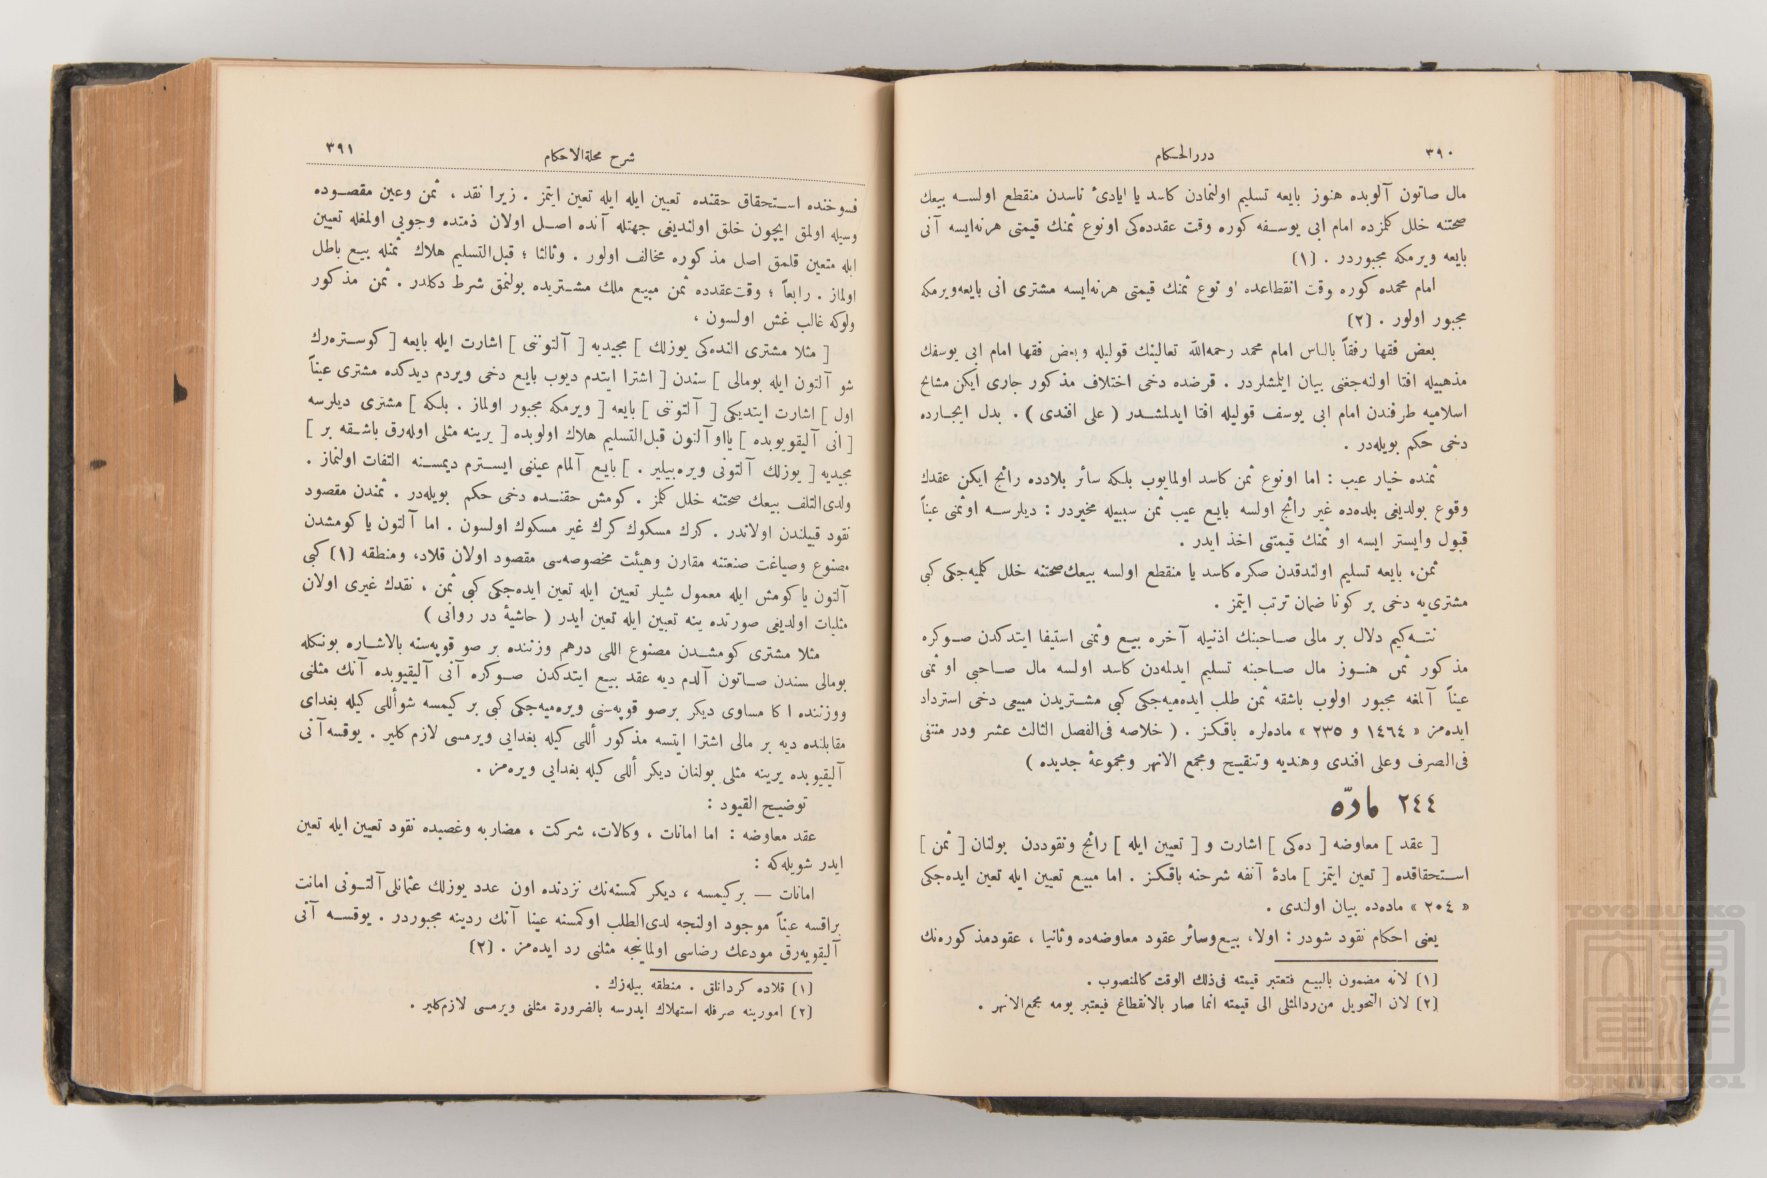 ٣٩٠
درر الحكام
مال صاتون آلوبده هنوز بايعه تسليم اولنمادن كاسد يا ايادئ ناسدن منقطع اولسه بيعك
صحتنه خلل كلمزده امام ابى يوسفه كوره وقت عقدده كى اونوع ثمنك قيمتى هرنه ايسه آنى
بايعه ويرمكه مجبوردر . (١)
امام محمده كوره وقت انقطاعده او نوع ثمنك قيمتى هرنه ايسه مشترى انى بايعه ويرمكه
مجبور اولور . (٢)
بعض فقها رفقاً بالناس امام محمد رحمه الله تعالينك قوليله وبعض فقها امام ابى يوسفك
مذهبيله افتا اولنه جغنى بيان ايلمشلردر . قرضده دخى اختلاف مذكور جارى ايكن مشايخ
اسلاميه طرفندن امام ابى يوسف قوليله افتا ايدلمشدر ( على افندى ) . بدل ايجارده
دخى حكم بويله در .
ثمنده خيار عيب : اما اونوع ثمن كاسد اولمايوب بلكه سائر بلادده رائج ايكن عقدك
وقوع بولديغى بلده ده غير رائج اولسه بايع عيب ثمن سببيله مخيردر : ديلرسه اوثمنى عيناً
قبول وايستر ايسه او ثمنك قيمتنى اخذ ايدر .
ثمن، بايعه تسليم اولندقدن صكره كاسد يا منقطع اولسه بيعك صحتنه خلل كلميه جكى كبى
مشترى يه دخى بر كونا ضمان ترتب ايتمز .
نته كيم دلال بر مالى صاحبنك اذنيله آخره بيع وثمنى استيفا ايتدكدن صوكره
مذكور ثمن هنوز مال صاحبنه تسليم ايدلمه دن كاسد اولسه مال صاحبى او ثمنى
عيناً آلمغه مجبور اولوب باشقه ثمن طلب ايده ميه جكى كبى مشتريدن مبيعى دخى استرداد
ايده مز « ١٤٦٤ و ٢٣٥ » ماده لره باقكز . ( خلاصه فى الفصل الثالث عشر ودر منتقى
فى الصرف وعلى افندى وهنديه وتنقيح ومجمع الانهر ومجموعهٔ جديده )
٢٤٤ مادّه
[ عقد ] معاوضه [ ده كى ] اشارت و [ تعيين ايله ] رائج ونقوددن بولنان [ ثمن ]
استحقاقده [ تعين ايتمز ] مادهٔ آنفه شرحنه باقكز . اما مبيع تعيين ايله تعين ايده جكى
« ٢٠٤ » ماده ده بيان اولندى .
يعنى احكام نقود شودر : اولا، بيع وسائر عقود معاوضه ده وثانيا ، عقودمذكوره نك
(١) لانه مضمون بالبيع فتعتبر قيمته فى ذلك الوقت كالمغصوب .
(٢) لان التحويل من رد المثلى الى قيمته انما صار بالانقطاع فيعتبر يومه مجمع الانهر .
٣٩١
شرح مجلة الاحكام
فسوخنده استحقاق حقنده تعيين ايله ايله تعين ايتمز . زيرا نقد ، ثمن وعين مقصوده
وسيله اولمق ايچون خلق اولنديغى جهتله آنده اصل اولان ذمتده وجوبى اولمغله تعيين
ايله متعين قلمق اصل مذكوره مخالف اولور . وثالثا ؛ قبل التسليم هلاك ثمنله بيع باطل
اولماز . رابعاً ؛ وقت عقدده ثمن مبيع ملك مشتريده بولنمق شرط دكلدر . ثمن مذكور
ولوكه غالب غش اولسون ،
[ مثلا مشترى النده كى يوزلك ] مجيديه [ آلتوننى ] اشارت ايله بايعه [ كوستره رك
شو آلتون ايله بومالى ] سندن [ اشترا ايتدم ديوب بايع دخى ويردم ديدكده مشترى عيناً
اول ] اشارت ايتديكى [ آلتوننى ] بايعه [ ويرمكه مجبور اولماز . بلكه ] مشترى ديلرسه
[ انى آليقويوبده ] يااو آلتون قبل التسليم هلاك اولوبده [ يرينه مثلى اوله رق باشقه بر ]
مجيديه [ يوزلك آلتونى ويره بيلير . ] بايع آلمام عيننى ايسترم ديمسنه التفات اولنماز .
ولدى التلف بيعك صحتنه خلل كلمز . كومش حقنده دخى حكم بويله در . ثمندن مقصود
نقود قبيلندن اولاندر . كرك مسكوك كرك غير مسكوك اولسون . اما آلتون يا كومشدن
مصنوع وصياغت صنعتنه مقارن وهيئت مخصوصه سى مقصود اولان قلاد، ومنطقه (١) كبى
آلتون يا كومش ايله معمول شيلر تعيين ايله تعين ايده جكى كبى ثمن ، نقدك غيرى اولان
مثليات اولديغى صورتده ينه تعيين ايله تعين ايدر ( حاشيهٔ در روانى )
مثلا مشترى كومشدن مصنوع اللى درهم وزننده بر صو قوپه سنه بالاشاره بونكله
بومالى سندن صاتون آلدم ديه عقد بيع ايتدكدن صوكره آنى آليقيوبده آنك مثلنى
ووزننده اكا مساوى ديكر برصو قوپه سنى ويره ميه جكى كبى بر كيمسه شو أللى كيله بغداى
مقابلنده ديه بر مالى اشترا ايتسه مذكور أللى كيله بغدايى ويرمسى لازم كلير . يوقسه آنى
آليقيوبده يرينه مثلى بولنان ديكر أللى كيله بغدايى ويره مز .
توضيح القيود :
عقد معاوضه : اما امانات ، وكالات، شركت ، مضاربه وغصبده نقود تعيين ايله تعين
ايدر شويله كه :
امانات — بركيمسه ، ديكر كمسنه نك نزدنده اون عدد يوزلك عثمانلى آلتونى امانت
براقسه عيناً موجود اولنجه لدى الطلب اوكمسنه عينا آنك ردينه مجبوردر . يوقسه آنى
آليقويه رق مودعك رضاسى اولماينجه مثلنى رد ايده مز . (٢)
(١) قلاده كردانلق . منطقه بيله زك .
(٢) امورينه صرفله استهلاك ايدرسه بالضرورة مثلنى ويرمسى لازم كلير .
TOYO BUNKO
TOYO BUNKO